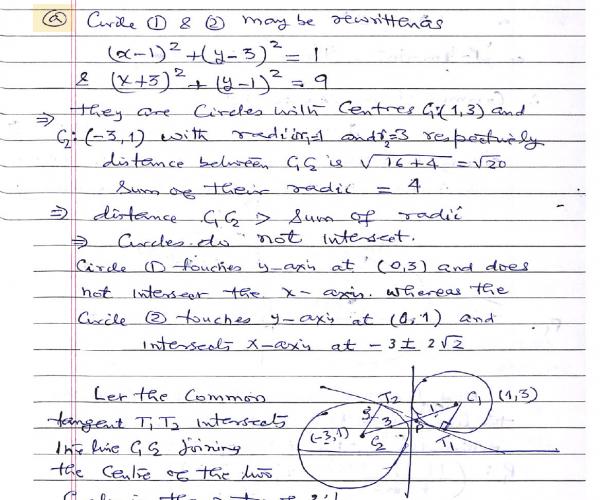 (a) Circle (1) & (2) may be rewritten as
(x-1)² + (y-3)² = 1
& (x+3)² + (y-1)² = 9
⇒ they are Circles with Centres C₁:(1,3) and
C₂:(-3,1) with radii r₁=1 and r₂=3 respectively
distance between C₁C₂ is √16+4 = √20
Sum of their radii = 4
⇒ distance C₁C₂ > Sum of radii
⇒ Circles do not intersect.
Circle (1) touches y-axis at (0,3) and does
not intersect the x-axis. whereas the
Circle (2) touches y-axis at (0,1) and
intersects x-axis at -3 ± 2√2
Let the Common
tangent T₁T₂ intersects
the line C₁C₂ joining
the Centre of the two
T₂
C₁ (1,3)
3
1
P
3
(-3,1)
C₂
T₁